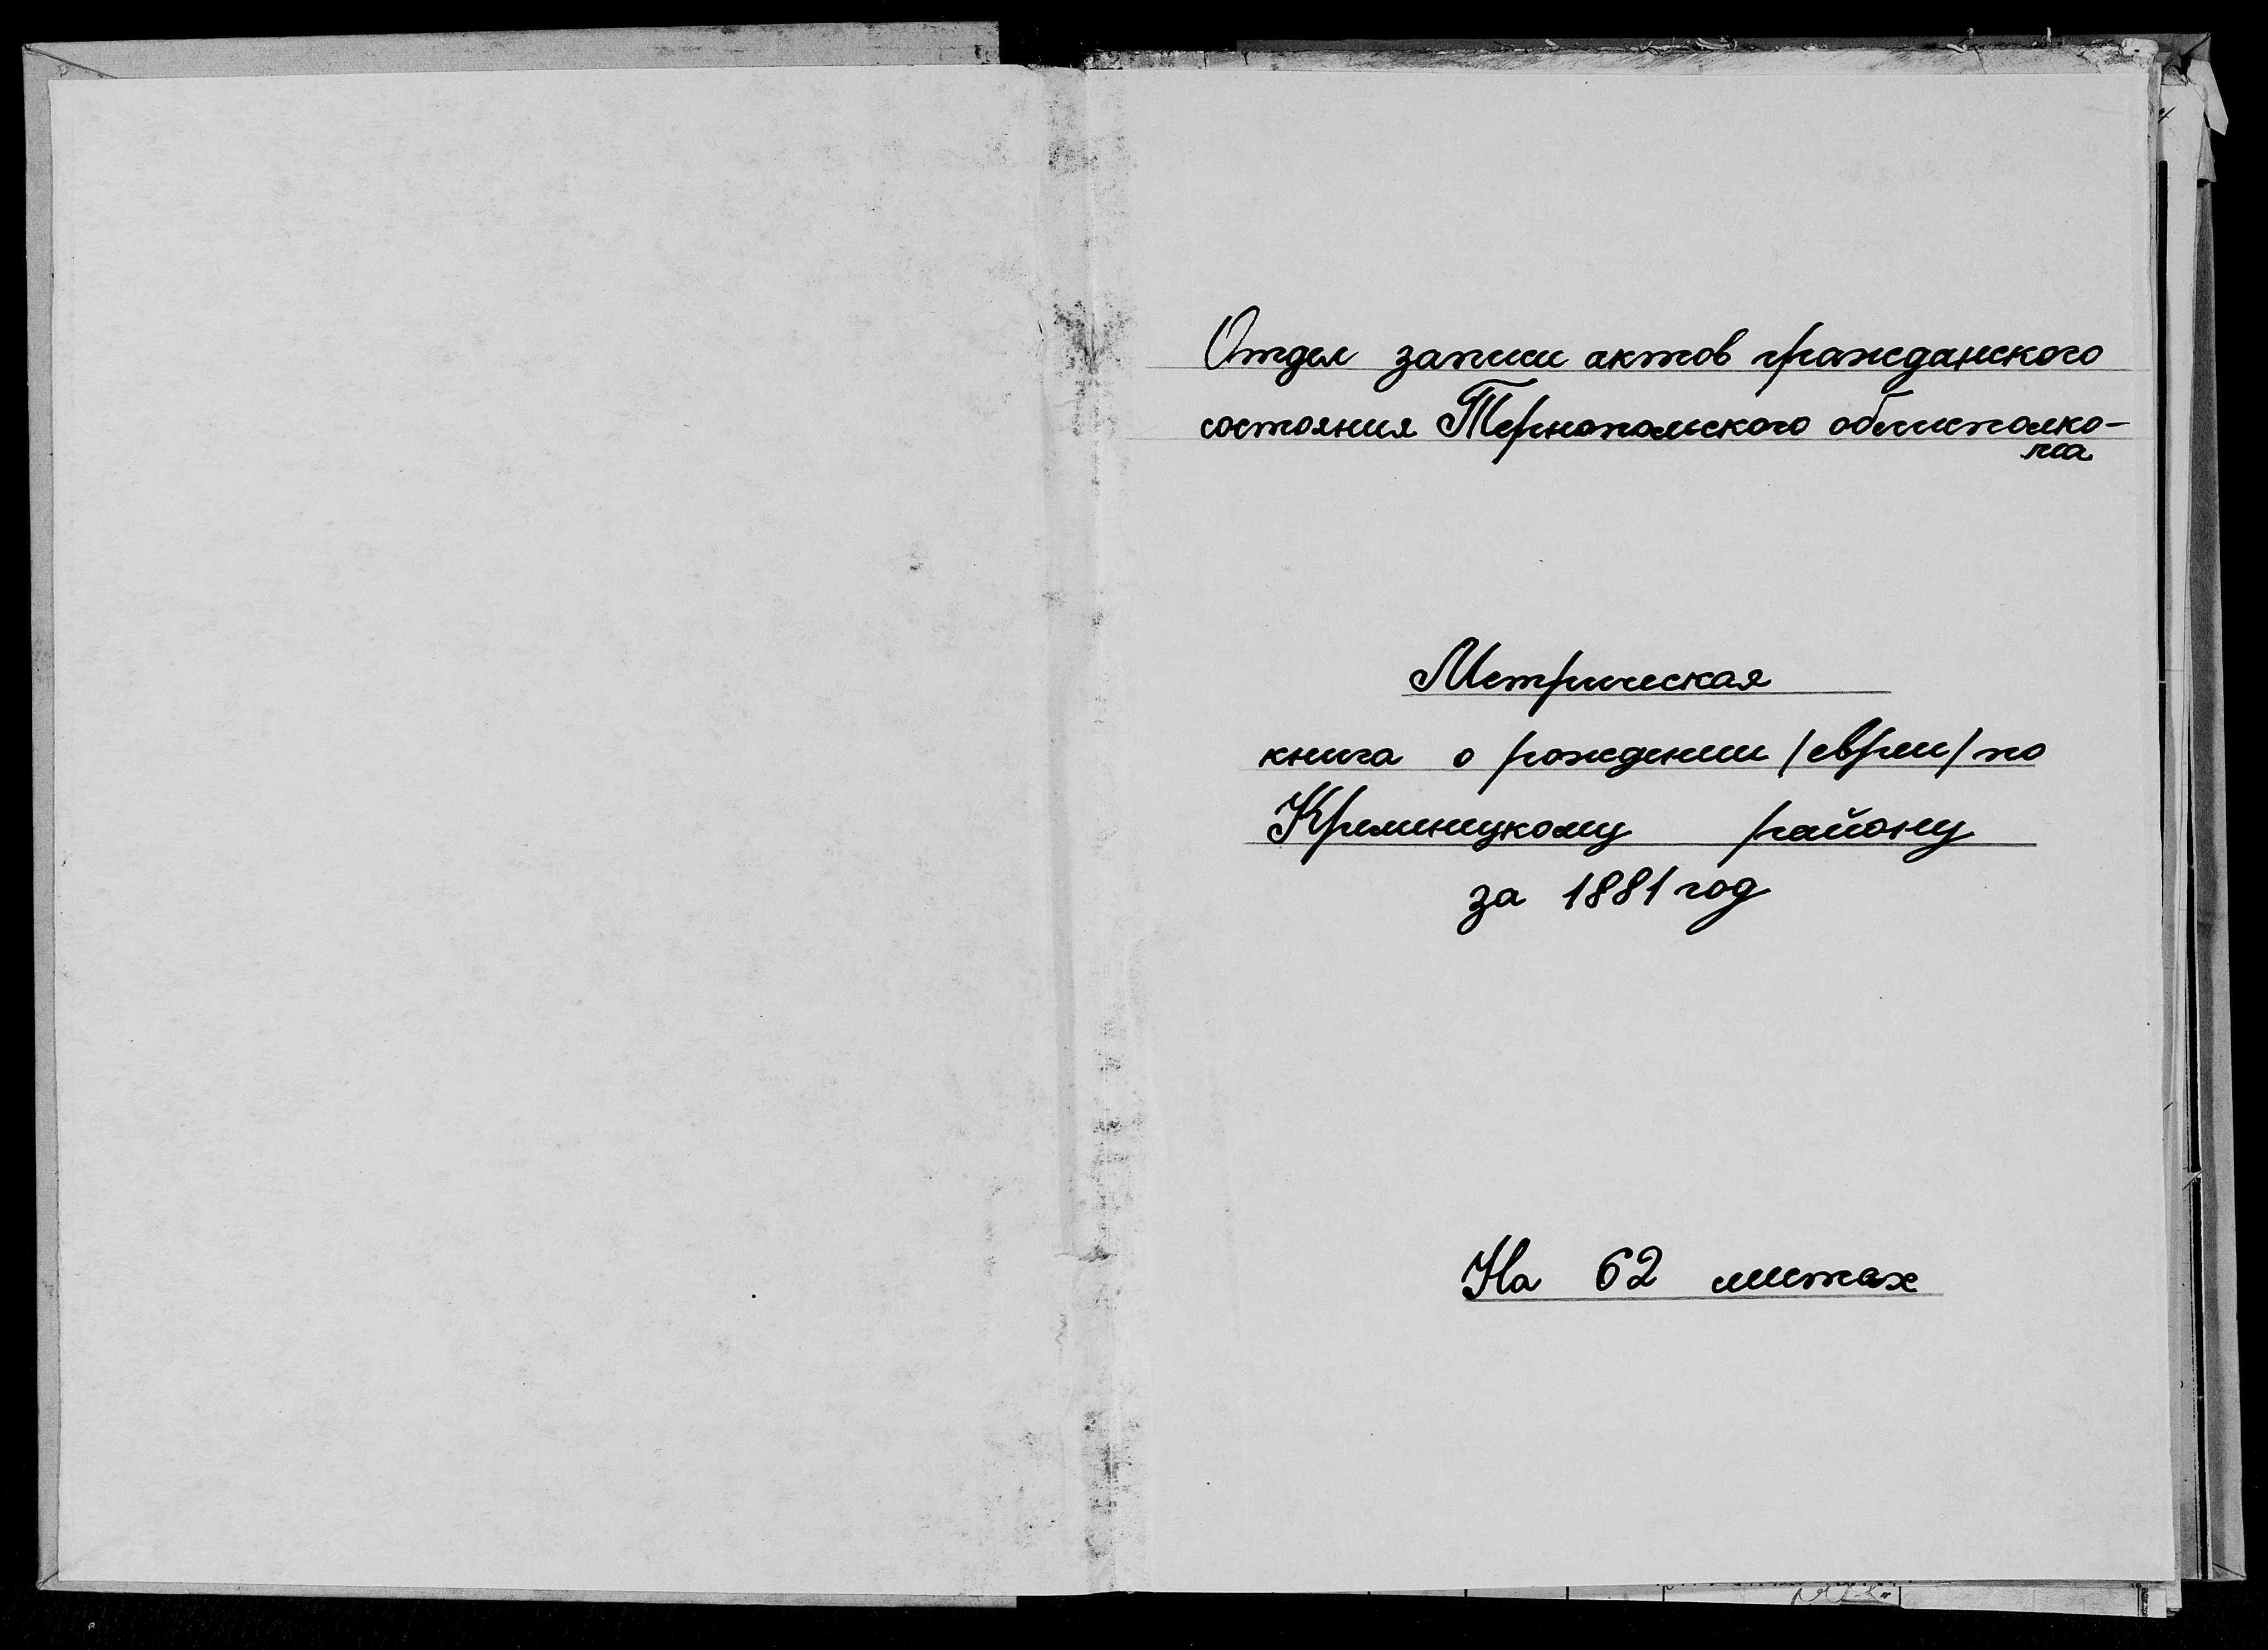 Отдел записи актов гражданского
состояния Тернопольского облисполко-
ма
Метрическая
книга о рождении /евреи/ по
Кременецкому району
за 1881 год
На 62 листах